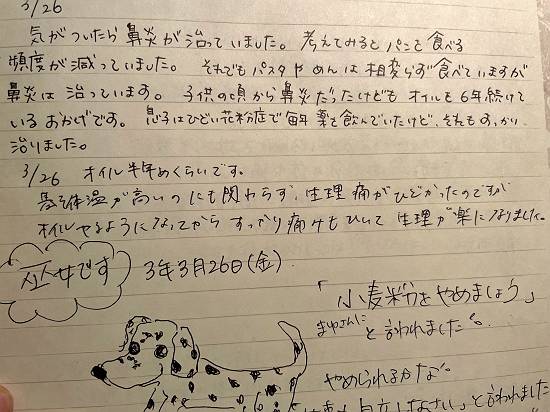 3/26
気がついたら鼻炎が治っていました。考えてみるとパンを食べる
頻度が減っていました。それでもパスタやめんは相変らず食べていますが
鼻炎は治っています。子供の頃から鼻炎だったけどもオイルも6年続けて
いるおかげです。息子はひどい花粉症で毎年薬を飲んでいたけど、それもすっかり
治りました。
3/26 オイル半年めくらいです。
基礎体温が高いのにも関わらず、生理痛がひどかったのですが
オイルやるようになってからすっかり痛みもひいて生理が楽になりました。
です 3年3月26日(金)
「小麦粉をやめましょう」
まゆさんに
と言われました
やめられるかな
しなさい」と言われました